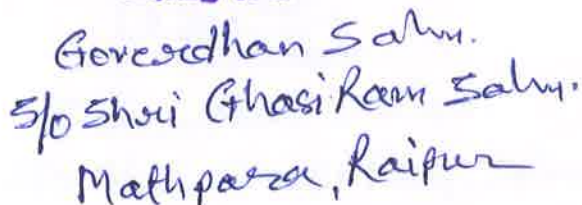 Goverdhan Sahu.
S/o Shri Ghasi Ram Sahu.
Mathpara, Raipur